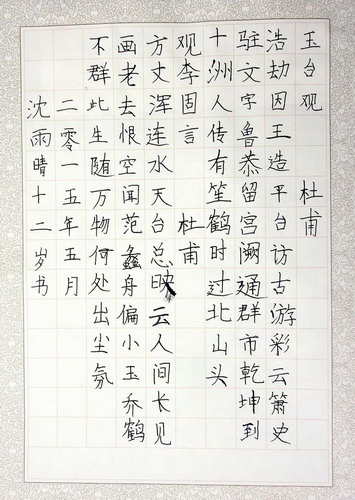 玉台观 杜甫
浩劫因王造平台访古游彩云箫史
驻文字鲁恭留宫阙通群市乾坤到
十洲人传有笙鹤时过北山头
观李固言 杜甫
方丈浑连水天台总映云人间长见
画老去恨空闻范蠡舟偏小玉乔鹤
不群此生随万物何处出尘氛
二零一五年五月
沈雨晴十二岁书